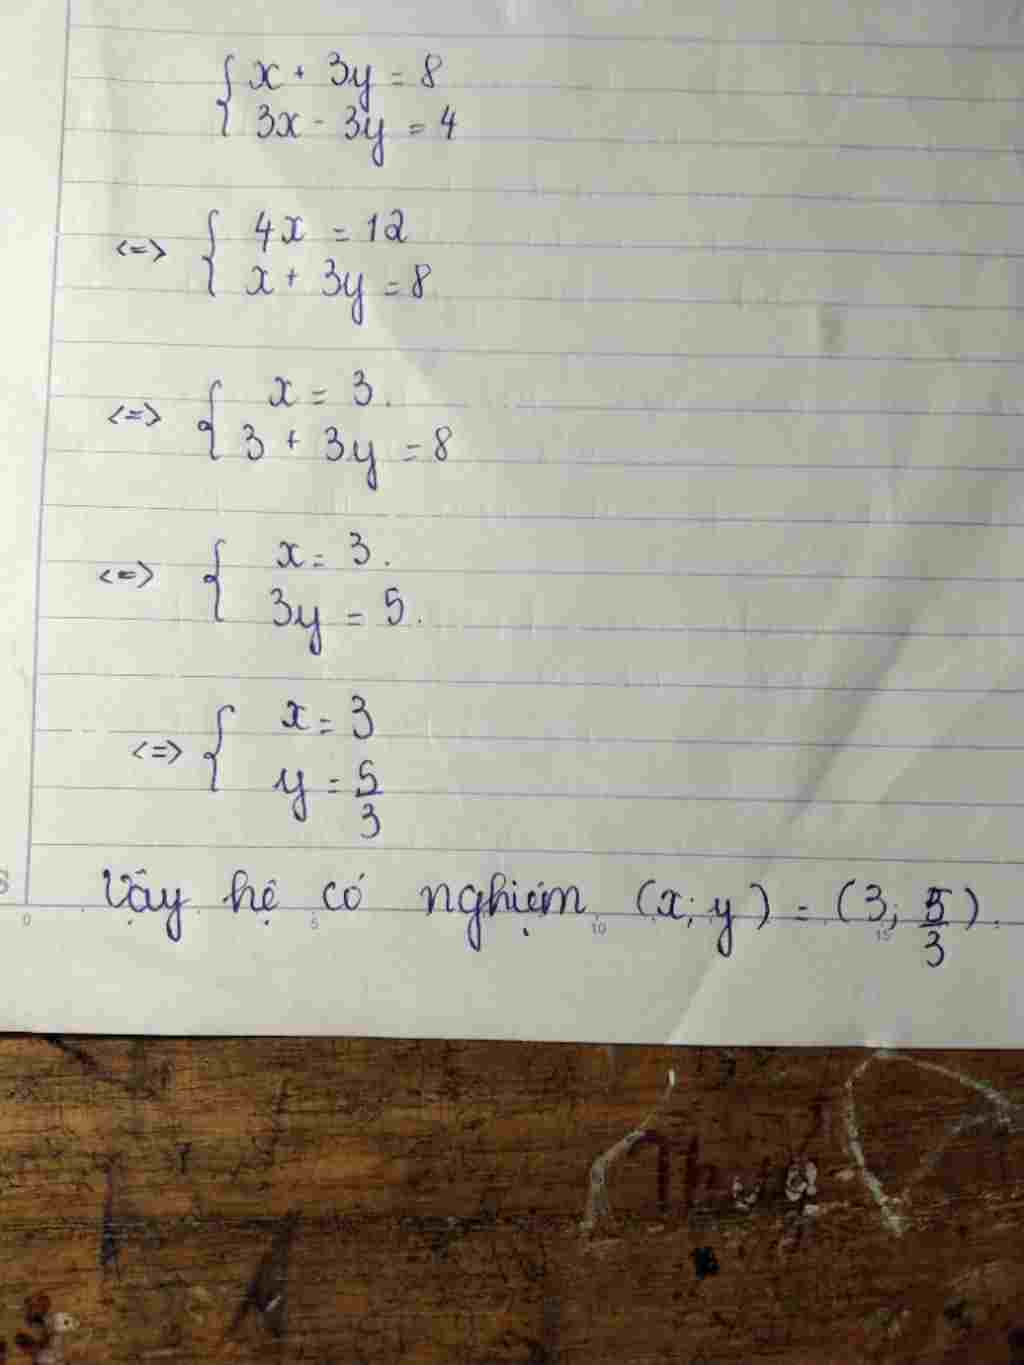 { x + 3y = 8
3x - 3y = 4
<=> { 4x = 12
x + 3y = 8
<=> { x = 3.
3 + 3y = 8
<=> { x = 3.
3y = 5.
<=> { x = 3
y = 5/3
Vậy hệ có nghiệm (x; y) = (3; 5/3).
0 5 10 15